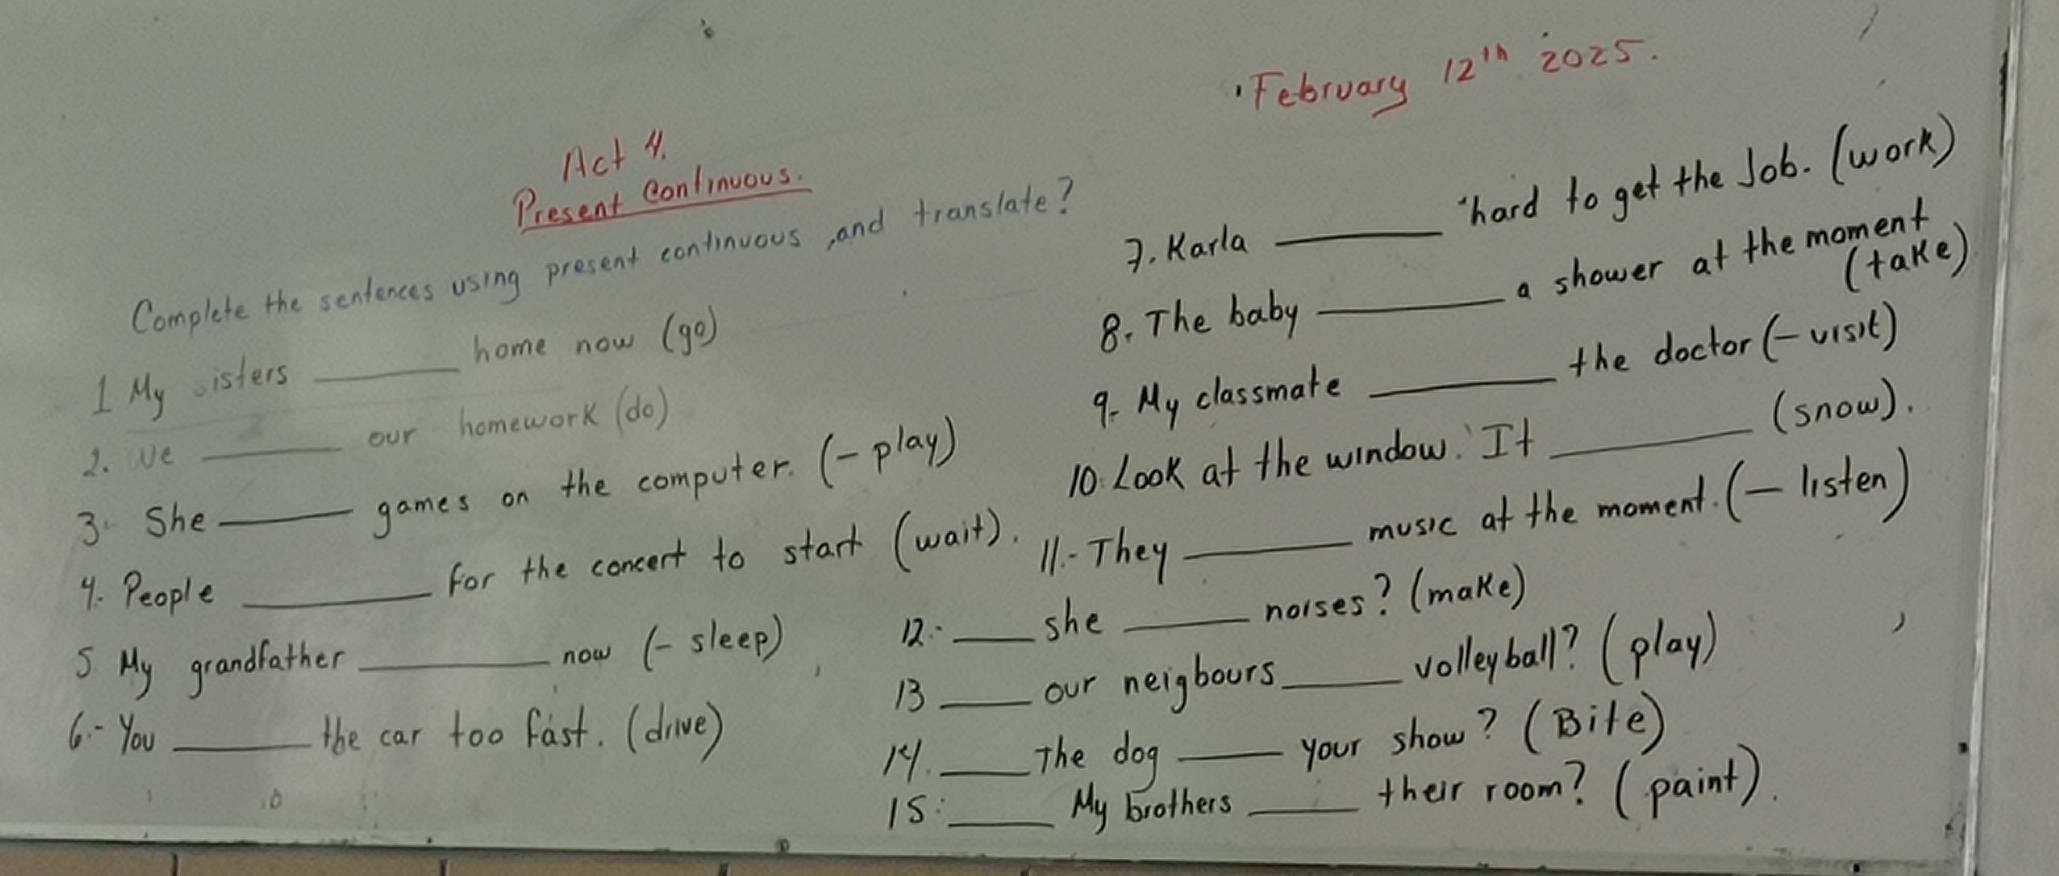 February 12th 2025.
Act 4.
Present Continuous.
Complete the sentences using present continuous, and translate?
1 My sisters ______ home now (go)
2. We ______ our homework (do)
3- She ______ games on the computer. (- play)
4- People ______ for the concert to start (wait).
5 My grandfather ______ now (- sleep)
6.- You ______ the car too fast. (drive)
7. Karla ______ hard to get the Job. (work)
8. The baby ______ a shower at the moment
(take)
9- My classmate ______ the doctor (- visit)
10. Look at the window. It ______ (snow).
11.- They ______ music at the moment. (- listen)
12.- ____ she ____ noises? (make)
13 ____ our neigbours ____ volleyball? (play)
14. ____ The dog ____ your show? (Bite)
15: ____ My brothers ____ their room? (paint).